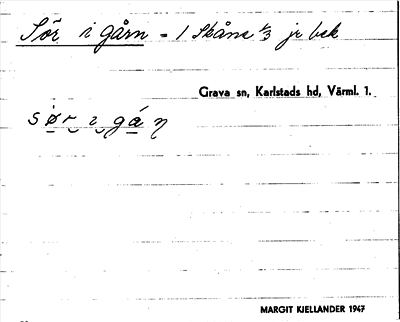 Sör i gårn - 1 Skåne 1/3 jr bek
Grava sn, Karlstads hd, Värml. 1.
sør ı gá ɳ
MARGIT KJELLANDER 1947